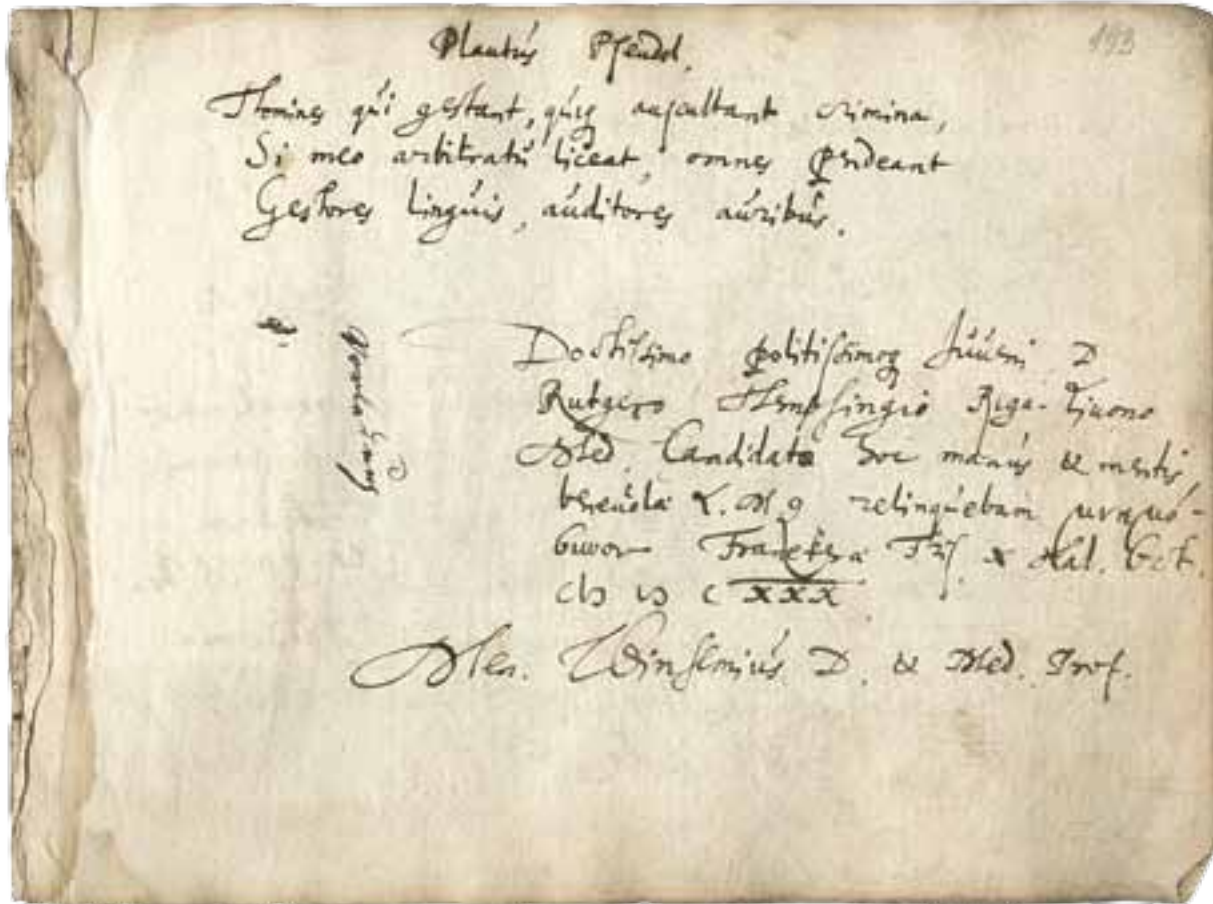 193
Plautus Pseudol.
Homines qui gestant, quiq auscultant crimina,
Si meo arbitratu liceat, omnes pendeant
Gestores linguis, auditores auribus.
Doctissimo politissimoq Juveni D
Rutgero Hemsingio Riga-Livono
Med. Candidato hoc manus & mentis
L. M q relinquebam μνημό-
συνον Franekerae Fris. x Kal. Oct.
cIɔ Iɔ c xxx
Men. Winsemius D. & Med. Prof.